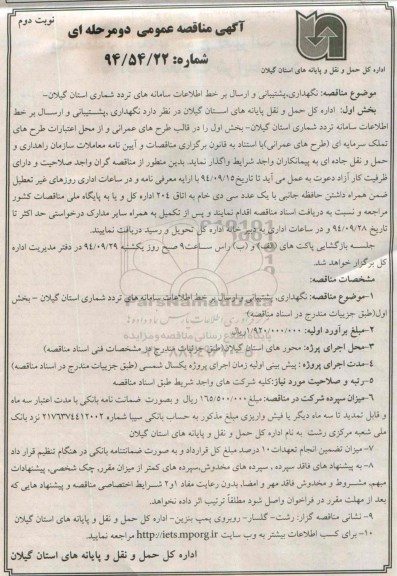 نوبت دوم
آگهی مناقصه عمومی دومرحله ای
شماره: ۹۴/۵۴/۲۲
اداره کل حمل و نقل و پایانه های استان گیلان
موضوع مناقصه: نگهداری،پشتیبانی و ارسال بر خط اطلاعات سامانه های تردد شماری استان گیلان-
بخش اول: اداره کل حمل و نقل پایانه های استان گیلان در نظر دارد نگهداری ،پشتیبانی و ارسال بر خط
اطلاعات سامانه تردد شماری استان گیلان- بخش اول را در قالب طرح های عمرانی و از محل اعتبارات طرح های
تملک سرمایه ای (طرح های عمرانی)با استناد به قانون برگزاری مناقصات و آیین نامه معاملات سازمان راهداری و
حمل و نقل جاده ای به پیمانکاران واجد شرایط واگذار نماید. بدین منظور از مناقصه گران واجد صلاحیت و دارای
ظرفیت کار آزاد دعوت به عمل می آید تا تاریخ ۹۴/۰۹/۱۵ با ارایه معرفی نامه و در ساعات اداری روزهای غیر تعطیل
ضمن همراه داشتن حافظه جانبی یا یک عدد سی دی خام به اتاق ۲۰۴ اداره کل و یا به پایگاه ملی مناقصات کشور
مراجعه و نسبت به دریافت اسناد مناقصه اقدام نمایند و پس از تکمیل به همراه سایر مدارک درخواستی حد اکثر تا
تاریخ ۹۴/۰۹/۲۸ و در ساعات اداری به دبیر خانه اداره کل تحویل و رسید دریافت نمایند.
جلسه بازگشایی پاکت های (الف) و (ب) راس ساعت۹ صبح روز یکشنبه ۹۴/۰۹/۲۹ در دفتر مدیریت اداره
کل برگزار خواهد شد.
مشخصات مناقصه:
۱-موضوع مناقصه: نگهداری، پشتیبانی و ارسال بر خط اطلاعات سامانه های تردد شماری استان گیلان – بخش
اول(طبق جزییات مندرج در اسناد مناقصه)
۲-مبلغ برآورد اولیه: ۱/۹۲۰/۰۰۰/۰۰۰ریال
۳-محل اجرای پروژه: محور های استان گیلان(طبق جزئیات مندرج در مشخصات فنی اسناد مناقصه)
۴-مدت اجرای پروژه : پیش بینی اولیه زمان اجرای پروژه یکسال شمسی (طبق جزییات مندرج در اسناد مناقصه)
۵-رتبه و صلاحیت مورد نیاز:کلیه شرکت های واجد شریط طبق اسناد مناقصه
۶-میزان سپرده شرکت در مناقصه: مبلغ ۱۶۵/۵۰۰/۰۰۰ ریال و بصورت ضمانت نامه بانکی با مدت اعتبار سه ماه
و قابل تمدید تا سه ماه دیگر یا فیش واریزی مبلغ مذکور به حساب بانکی سیبا شماره ۲۱۷۶۳۷۴۴۱۲۰۰۲ نزد بانک
ملی شعبه مرکزی رشت به نام اداره کل حمل و نقل و پایانه های استان گیلان
۷-میزان تضمین انجام تعهدات ۱۰ درصد مبلغ کل قرارداد و به صورت ضمانتنامه بانکی در هنگام تنظیم قرار داد
۸-به پیشنهاد های فاقد سپرده ، سپرده های مخدوش،سپرده های کمتر از میزان مقرر، چک شخصی، پیشنهادات
مبهم, مشروط و مخدوش فاقد مهر و امضا، بدون رعایت مفاد ۱و۲ شرایط اختصاصی مناقصه و پیشنهاد هایی که
بعد از مهلت مقرر در فراخوان واصل شود مطلقاً ترتیب اثر داده نخواهد.
۹- نشانی مناقصه گزار: رشت- گلسار- روبروی پمپ بنزین- اداره کل حمل و نقل و پایانه های استان گیلان
۱۰- برای کسب اطلاعات بیشتر به وب سایت http://iets.mporg.ir مراجعه نمایید.
اداره کل حمل و نقل و پایانه های استان گیلان